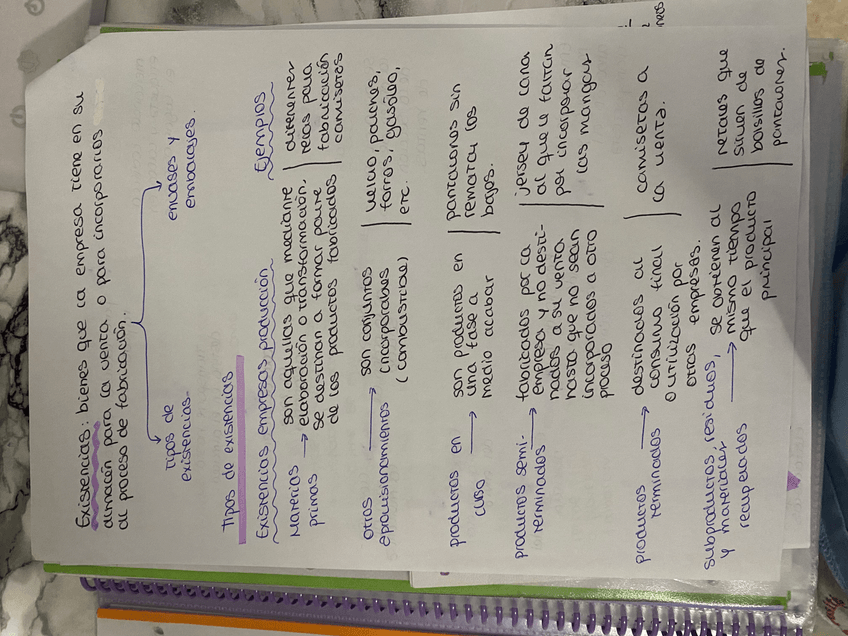 Existencias: bienes que la empresa tiene en su
almacén para la venta o para incorporarlos
al proceso de fabricación.
Tipos de
existencias.
envases y
embalajes.
Tipos de existencias
Existencias empresas producción
Ejemplos
Materias
primas
son aquellas que mediante
elaboración o transformación,
se destinan a formar parte
de los productos fabricados
diferentes
telas para
fabricación
camisetas
Otros
aprovisionamientos
son conjuntos
incorporables
(combustible)
forros, gasóleo,
etc.
productos en
curso
son productos en
una fase a
medio acabar
pantalones sin
rematar los
bajos.
productos semi-
terminados
fabricados por la
empresa y no desti-
nados a su venta
hasta que no sean
incorporados a otro
proceso
jersey de lana
al que le faltan
por incorporar
las mangas
productos
terminados
destinados al
consumo final
o utilización por
otras empresas.
camisetas a
la venta.
subproductos, residuos,
y materiales
recuperados
se obtienen al
mismo tiempo
que el producto
principal
retales que
sirven de
bolsillos de
pantalones.